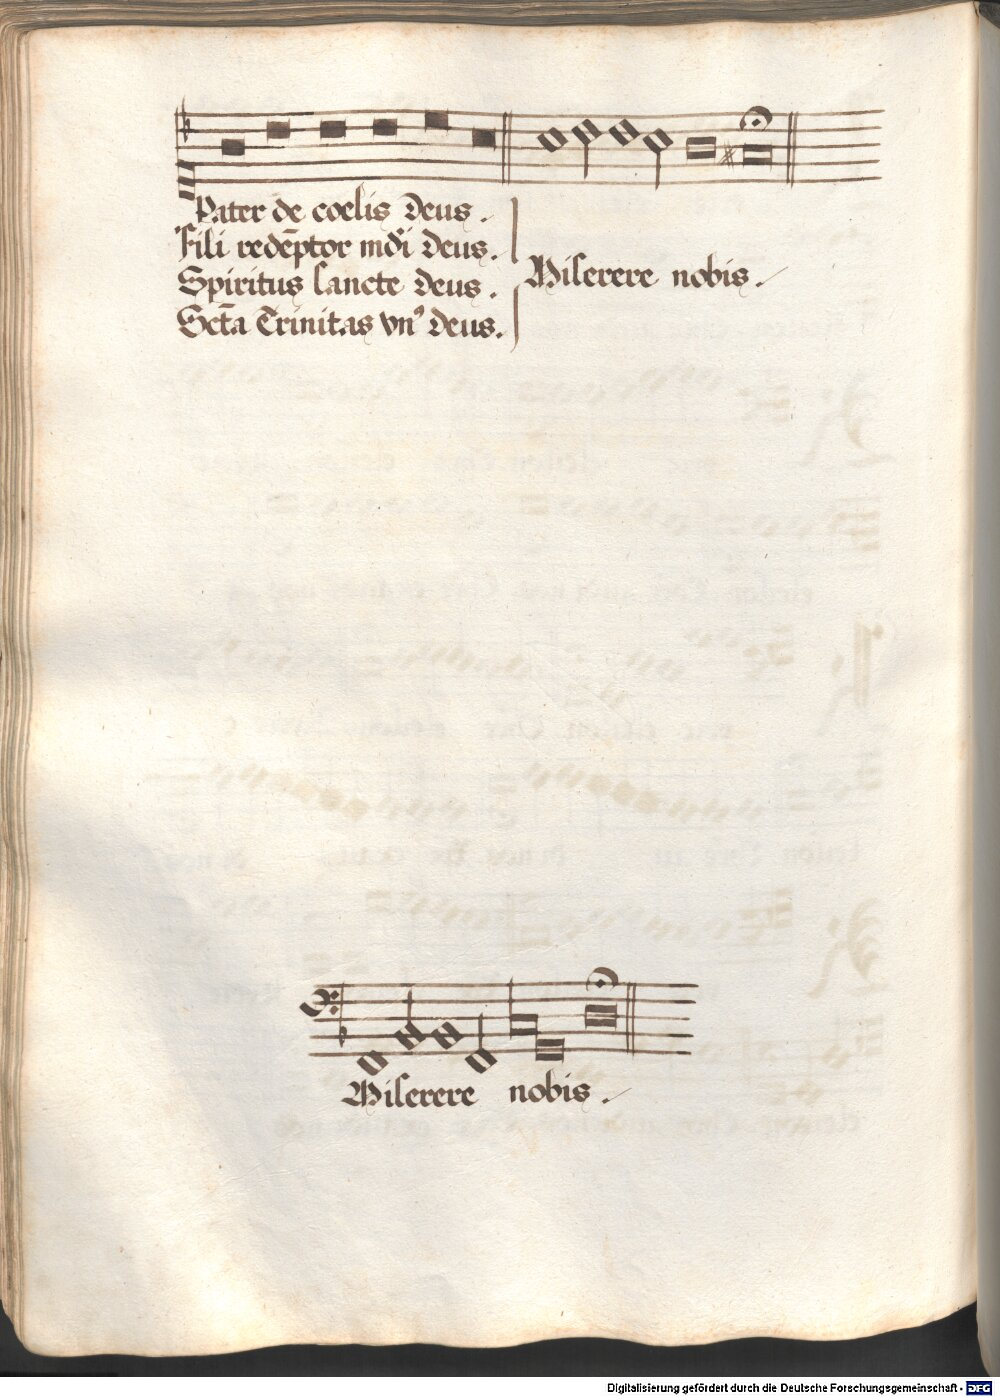 Pater de coelis Deus.
Fili redēptor mūdi Deus.
Spiritus sancte Deus.
Scta Trinitas vn⁹ Deus.
Miserere nobis.
Miserere nobis.
Digitalisierung gefördert durch die Deutsche Forschungsgemeinschaft - DFG